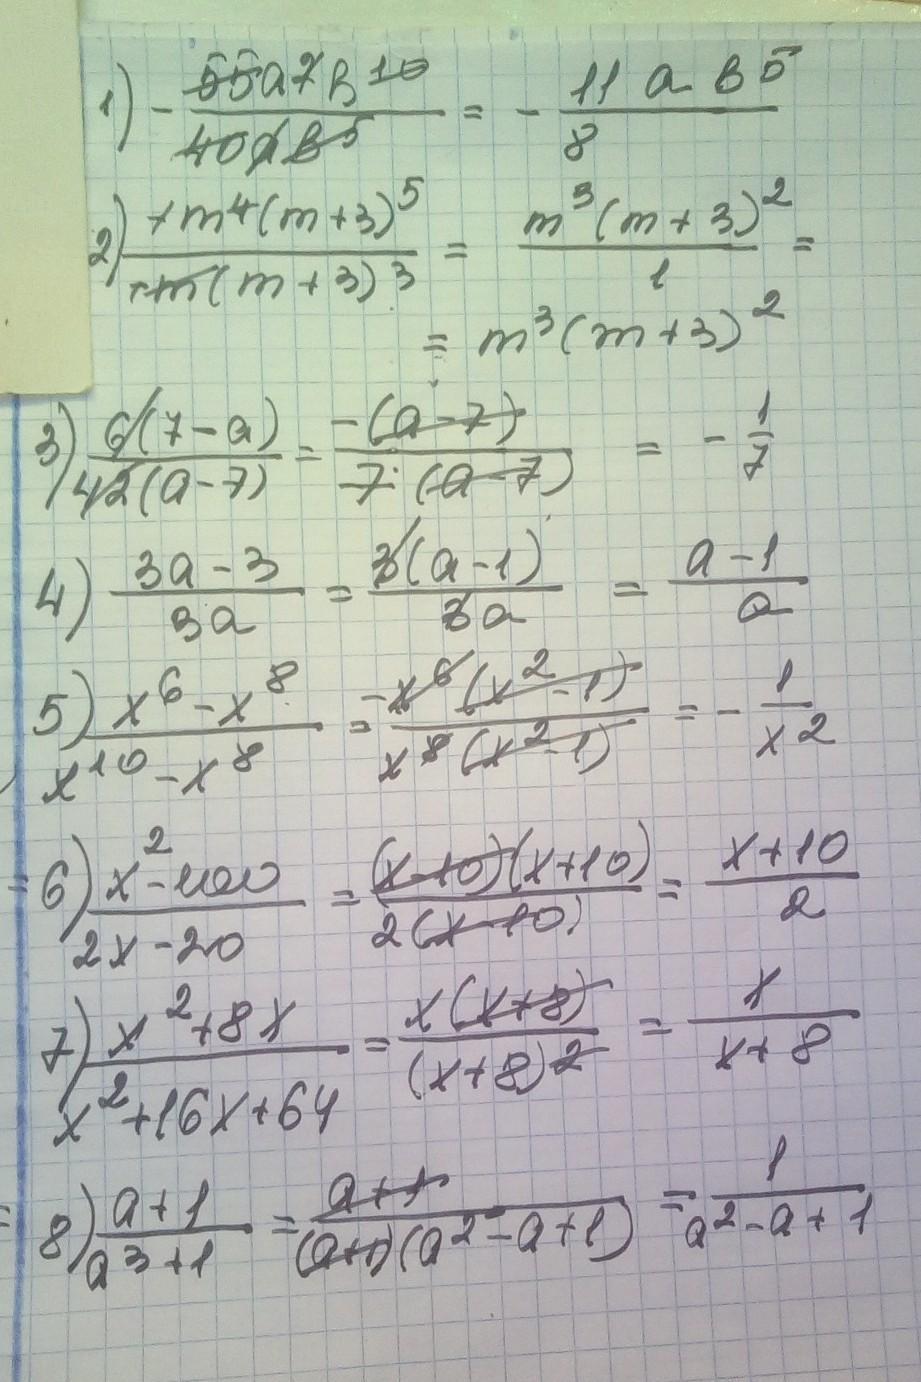 1) - 55a²b¹⁰ / 40ab⁵ = - 11ab⁵ / 8
2) +m⁴(m+3)⁵ / +m(m+3)³ = m³(m+3)² / 1 =
= m³(m+3)²
3) 6(7-a) / 42(a-7) = -(a-7) / 7·(a-7) = - 1/7
4) 3a-3 / 3a = 3(a-1) / 3a = a-1 / a
5) x⁶-x⁸ / x¹⁰-x⁸ = -x⁶(x²-1) / x⁸(x²-1) = - 1 / x²
6) x²-100 / 2x-20 = (x-10)(x+10) / 2(x-10) = x+10 / 2
7) x²+8x / x²+16x+64 = x(x+8) / (x+8)² = x / x+8
8) a+1 / a³+1 = a+1 / (a+1)(a²-a+1) = 1 / a²-a+1